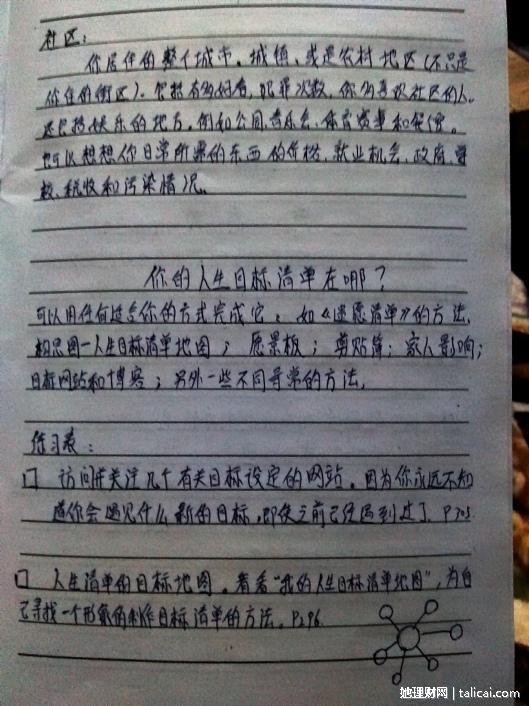 社区：
你居住的整个城市、城镇、或是农村地区(不只是
你住的街区)。包括有多好看，犯罪次数，你多喜欢社区的人。
还包括娱乐的地方，例如公园、音乐会、体育赛事和
可以想想你日常所需的东西的价格、就业机会、政府、学
校、税收和污染情况。
你的人生目标清单在哪？
可以用任何适合你的方式完成它。如《遗愿清单》的方法，
构思图一人生目标清单地图；愿景板；剪贴簿；家人影响；
目标网站和博客；另外一些不同寻常的方法。
练习表：
口 访问并关注几个有关目标设定的网站。因为你永远不知
道你会遇见什么新的目标，即使之前已经遇到过了。
口 人生清单的目标地图。看看“我的人生目标清单地图”，为自
己寻找一个形象的制作目标清单的方法。P296
她理财网 | talicai.com